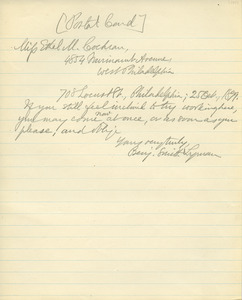 [Postal Card]
Miss Edel M. Cochran,
4834 Avenue,
West Philadelphia
708 Locust St., Philadelphia; 25 Oct.,
If you still feel inclined to try working here,
you may come now at once, or as soon as you
please, and oblige
Yours very truly,
Benj. Smith Lyman